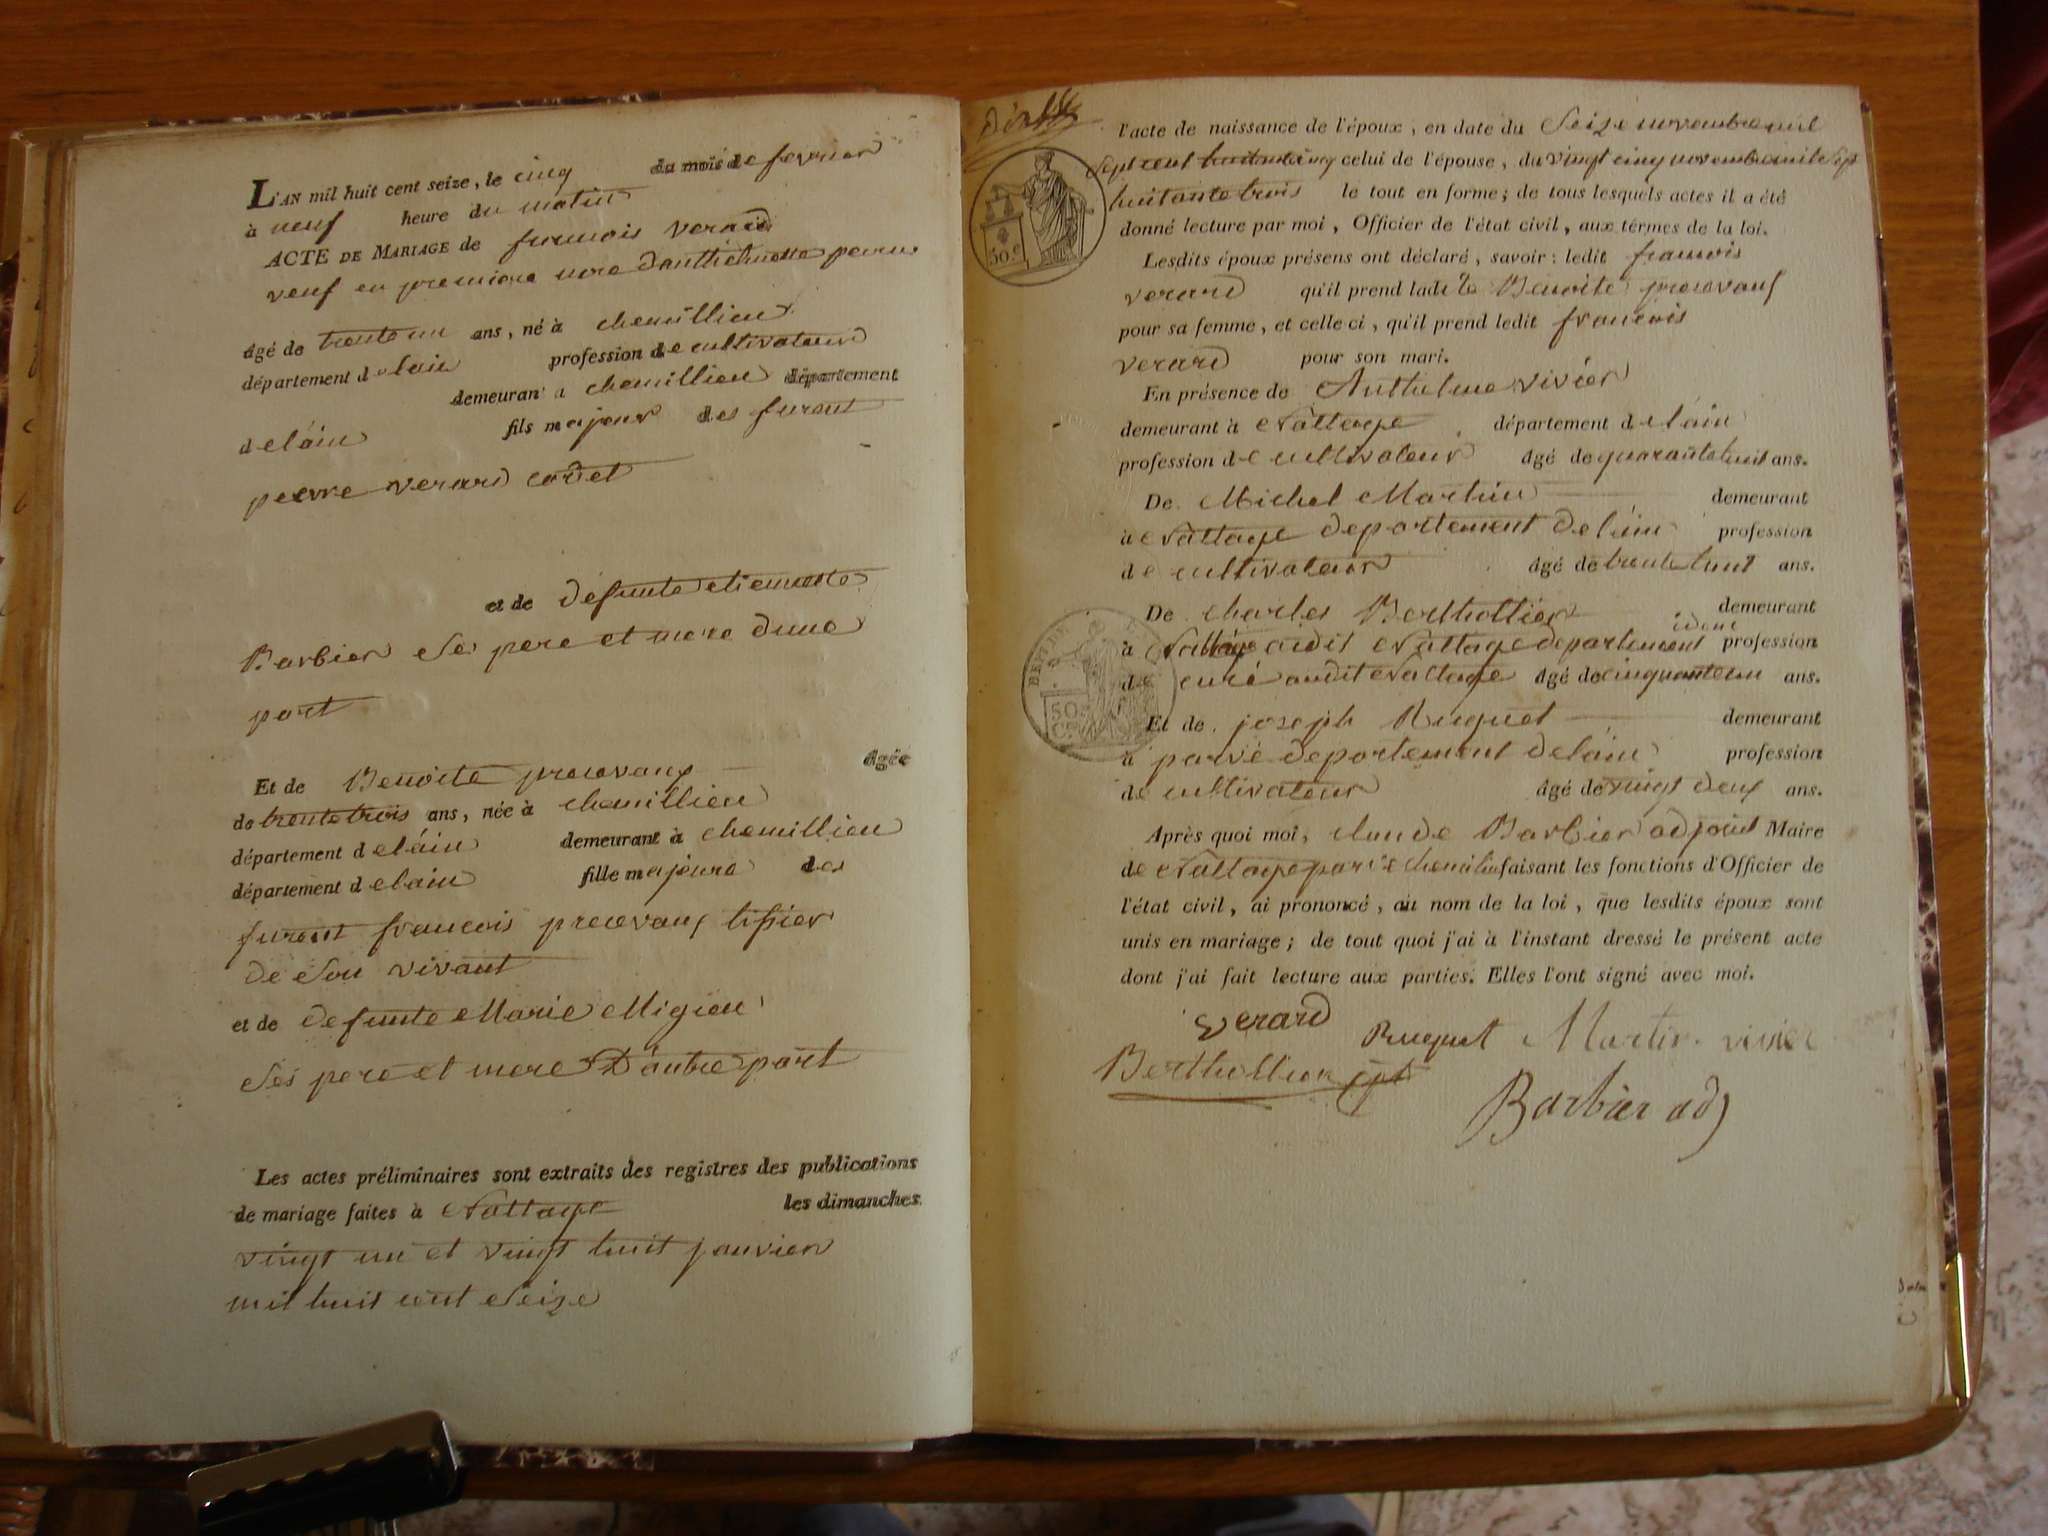 L'AN mil huit cent seize, le cinq du mois de fevrier
à neuf heure du matin
ACTE DE MARIAGE de francois verard
veuf en premiere
âgé de trente un ans, né à chemillieu
département delain profession de cultivateur
demeurant a chemillieu département
delain fils majeur des furent
pierre verard cadet
et de defunte etiennette
Barbier Ses pere et mere dune
part
Et de Benoite precovauf âgée
de trente trois ans, née à chemillieu
département delain demeurant à chemillieu
département delain fille majeure des
furent francois precovauf tissier
de Son vivant
et de defunte Marie Migieu
Ses pere et mere D'autre part
Les actes préliminaires sont extraits des registres des publications
de mariage faites à Nattage les dimanches
vingt un et vingt huit janvier
mil huit cent Seize
l'acte de naissance de l'époux, en date du Seize novembre mil
Sept cent huitante cinq celui de l'épouse, du vingt cinq novembre mile Sept
huitante trois le tout en forme; de tous lesquels actes il a été
donné lecture par moi, Officier de l'état civil, aux térmes de la loi.
50.c
Lesdits époux présens ont déclaré, savoir: ledit francois
verard qu'il prend ladite Benoite precovauf
pour sa femme, et celle ci, qu'il prend ledit francois
verard pour son mari.
En présence de Anthelme vivier
demeurant à Nattage département delain
profession de cultivateur âgé de quarante huit ans.
De Michel Martin demeurant
à Nattage departement Delain profession
de cultivateur âgé de trente huit ans.
De Charles Berthollier demeurant
idem
à audit Nattage departement profession
de curé audit Nattage âgé de cinquante un ans.
DEPT DE
50
C.
Et de joseph Ruguet demeurant
à parve departement Delain profession
de cultivateur âgé de vingt deuf ans.
Après quoi moi, claude Barbier adjoint Maire
de Nattage faisant les fonctions d'Officier de
l'état civil, ai prononcé, au nom de la loi, que lesdits époux sont
unis en mariage; de tout quoi j'ai à l'instant dressé le présent acte
dont j'ai fait lecture aux parties. Elles l'ont signé avec moi.
verard Ruguet Martin vivier
Berthollier
Barbier adj